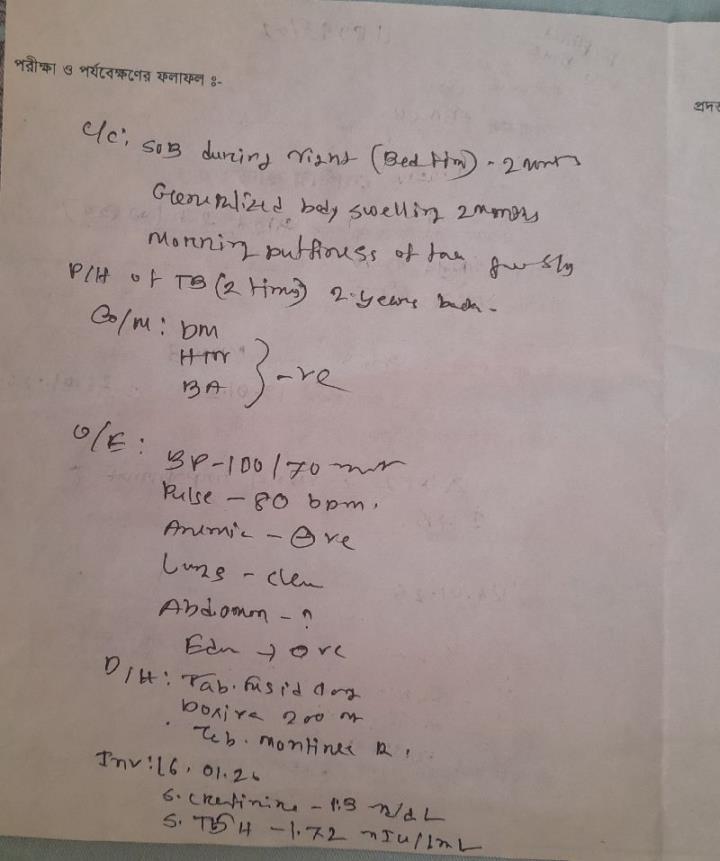 পরীক্ষা ও পর্যবেক্ষণের ফলাফল ঃ-
প্রদর
C/C: SOB during night (Bed time) - 2 months
Generalized body swelling 2 months
Morning puffiness of face
P/H of TB (2 times) 2 years back -
Co/m: DM
HTN
BA } -ve
O/E:
BP - 100/70
Pulse - 80 bpm.
Anemic - ⊖ ve
Lungs - clear
Abdomen - ?
Edema → ve
D/H: Tab. Fusid 40mg
Doxiva 200
Tab. Montinex R.
Inv: 16.01.26
S. Creatinine - 1.3 m/dL
S. TSH - 1.72 mIU/mL